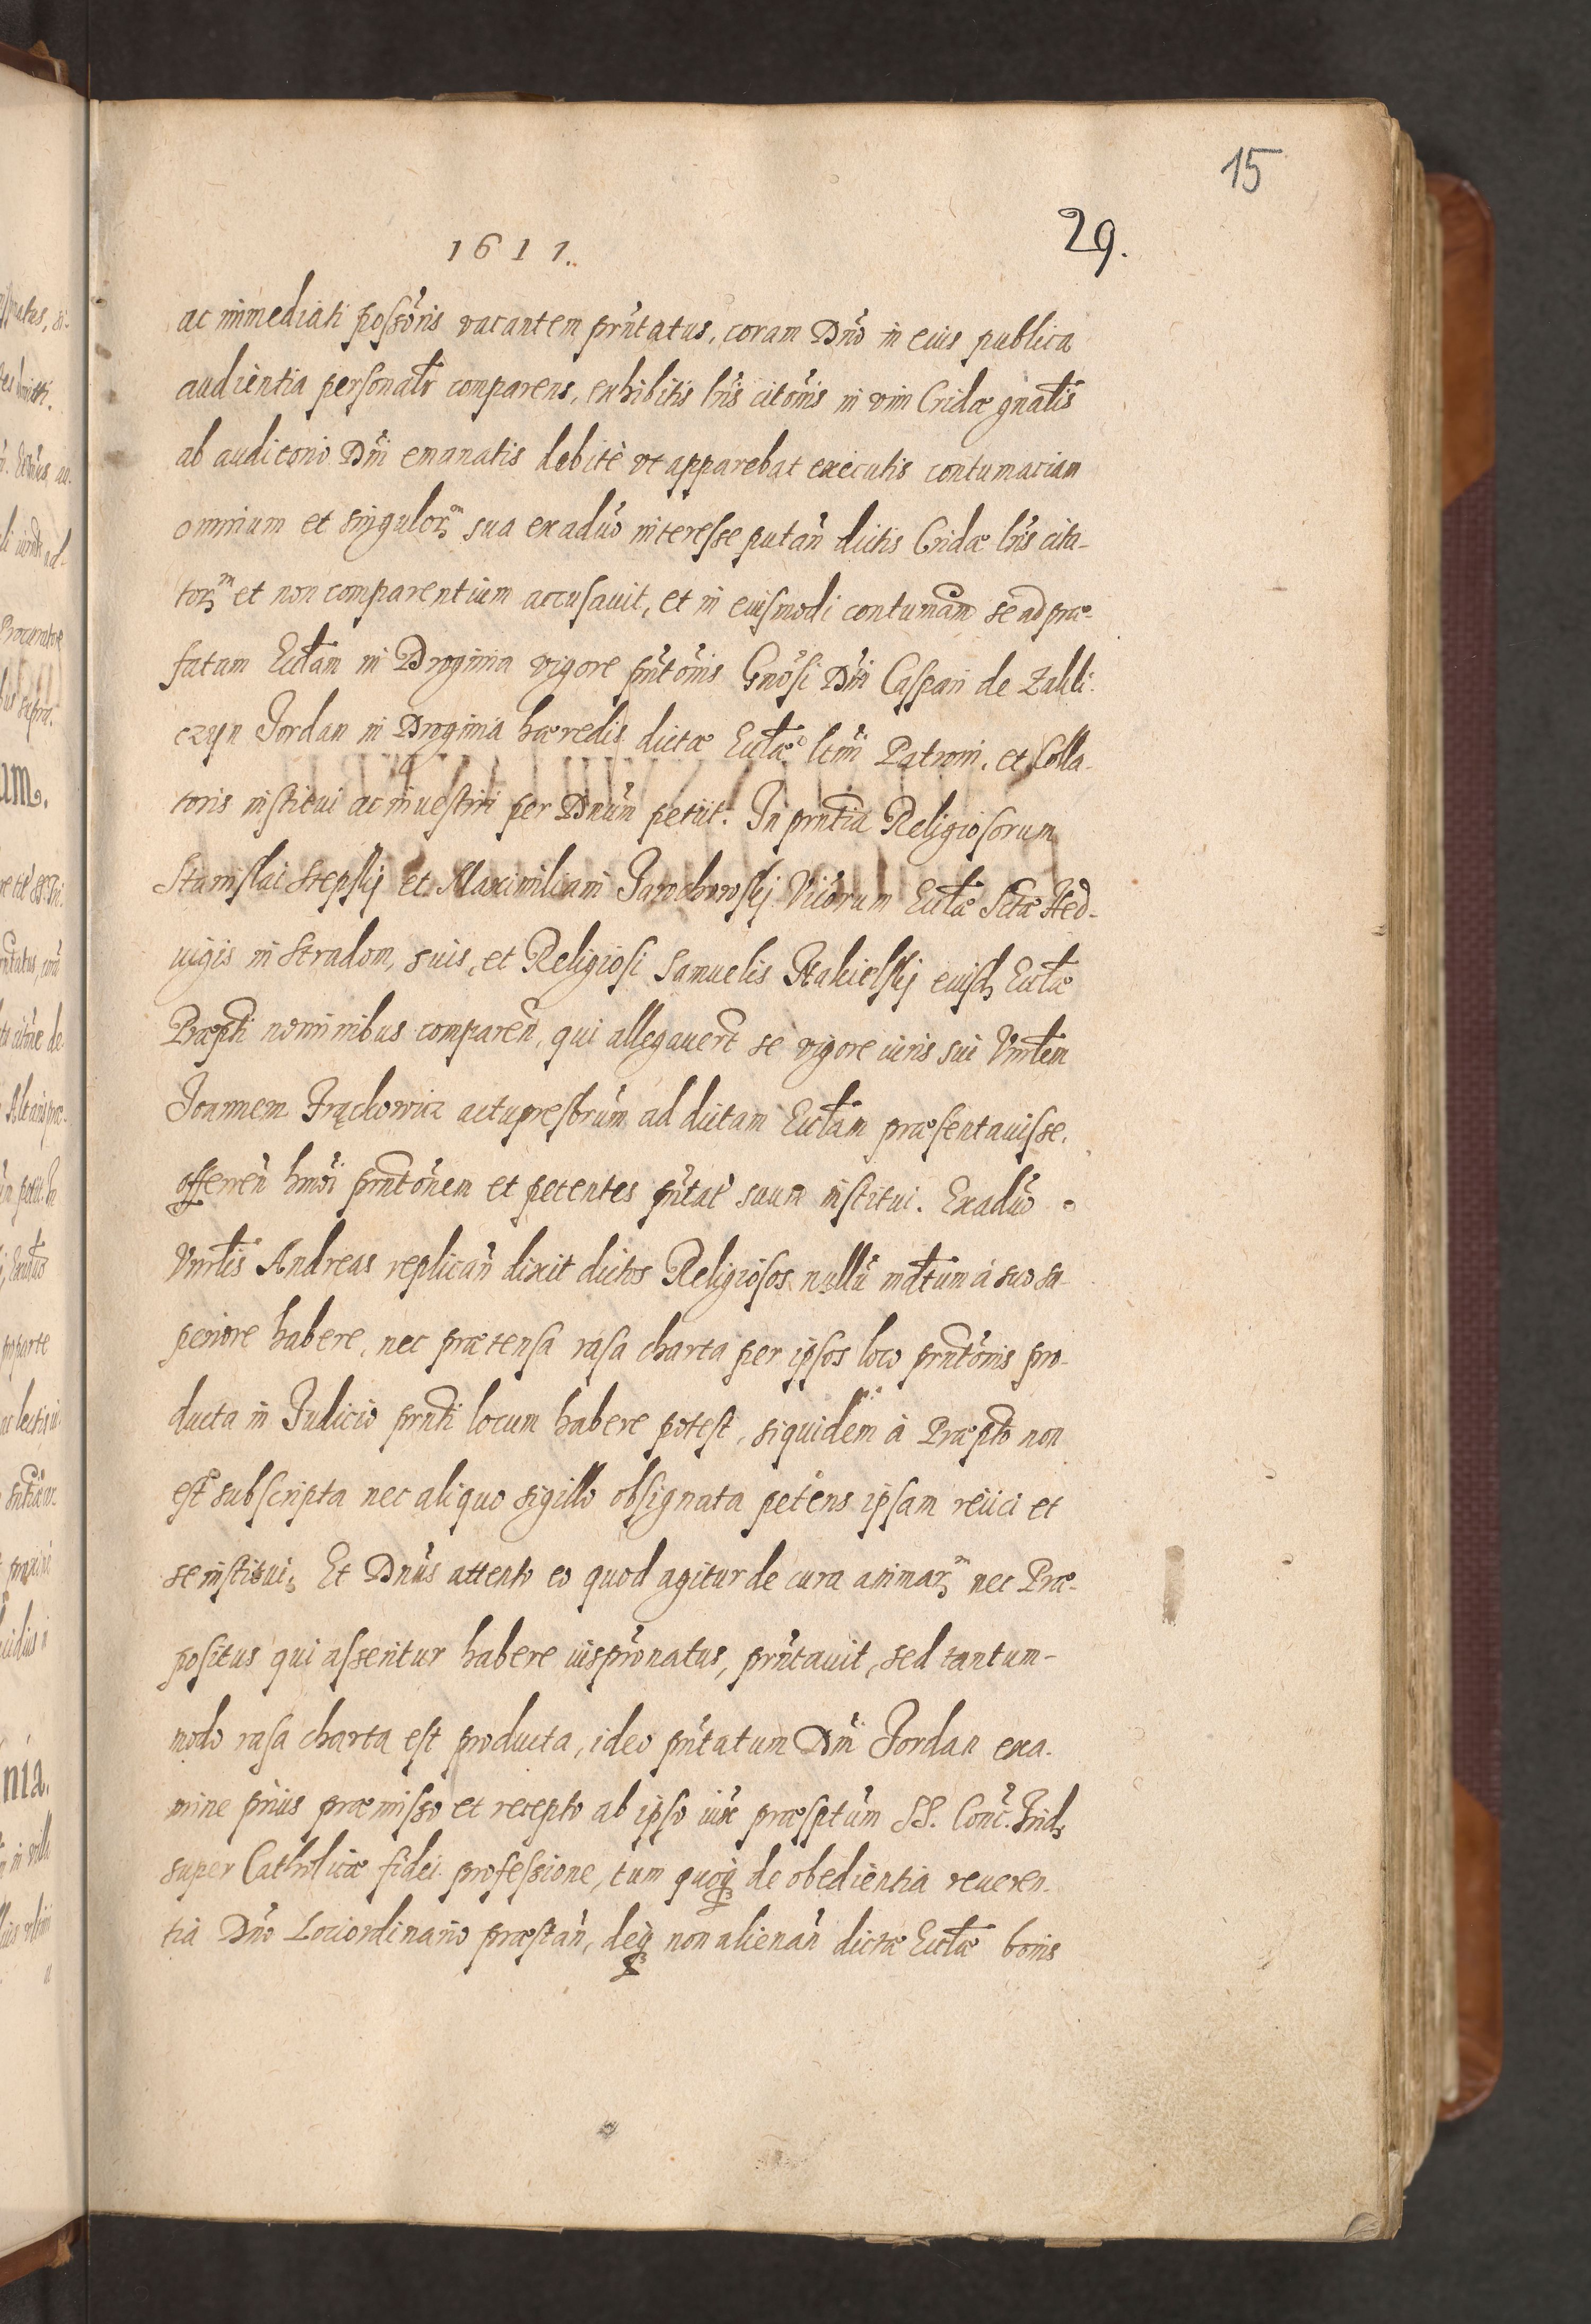 15
29.
1611.
ac immediati possõris vacantem prñtatus, coram Dño in eius publica
audientia personalr comparens, exhibitis lris citõnis in vim Cridæ gnalis
ab auditorio Dñi emanatis debitè vt apparebat executis contumaciam
omnium et singulorȝ sua exaduo interesse putañ dictis Cridæ lris cita-
torȝ et non comparentium accusauit, et in eiusmodi contumam se ad præ-
fatam Ecclam in Droginia vigore prñtõnis Gnosi Dñi Caspari de Zakli-
czyn Jordan in Droginia hæredis dictæ Ecclæ ltmi Patroni, et Colla-
toris institui ac inuestiri per Dnum petiit. In prñtia Religiosorum
Stanislai Stepskj et Maximiliani Jarochowskj Vicorum Ecclæ Sctæ Hed-
uigis in Stradom, suis, et Religiosi Samuelis Nakielskj eiusdȝ Ecclæ
Præpti nominibus compareñ, qui allegauert se vigore iuris sui Vnrlem
Joannem Frąckowicz actupresbrum ad dictam Ecclam præsentauisse,
offereñ hmõi prñtõnem et petentes prñtat suum institui. Exaduo
Vnrlis Andreas replicañ dixit dictos Religiosos nullũ mdtum à suo su-
periore habere, nec prætensa rasa charta per ipsos loco prñtõnis pro-
ducta in Judicio prñti locum habere potest, siquidem à Præpto non
est subscripta nec aliquo sigillo obsignata petens ipsam reiici et
se institui. Et Dnus attento eo quod agitur de cura animarȝ nec Præ-
positus qui asseritur habere iuspronatus, prñtauit, sed tantum-
modo rasa charta est producta, ideo prñtatum Dñi Jordan exa-
mine prius præmisso et recepto ab ipso iuxᵃ præsptum SS. Conc. Tridȝ
super Catholicæ fidei professione, tum quoqȝ de obedientia reueren-
tia Dño Lociordinario præstañ, deqȝ non alienañ dictæ Ecclæ bonis